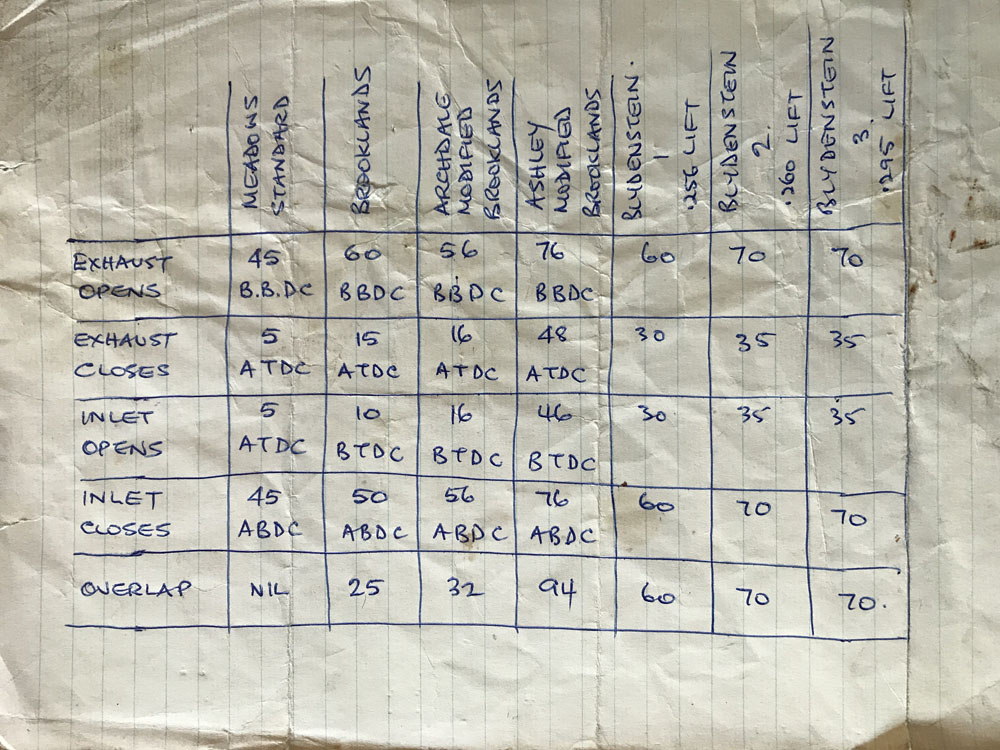 MEADOWS
STANDARD
BROOKLANDS
ARCHDALE
MODIFIED
BROOKLANDS
ASHLEY
MODIFIED
BROOKLANDS
BLYDENSTEIN.
1
.256 LIFT
BLYDENSTEIN
2.
.260 LIFT
BLYDENSTEIN
3.
.295 LIFT
EXHAUST 45 60 56 76 60 70 70
OPENS B.B.DC BBDC BBDC BBDC
EXHAUST 5 15 16 48 30 35 35
CLOSES ATDC ATDC ATDC ATDC
INLET 5 10 16 46 30 35 35
OPENS ATDC BTDC BTDC BTDC
INLET 45 50 56 76 60 70 70
CLOSES ABDC ABDC ABDC ABDC
OVERLAP NIL 25 32 94 60 70 70.